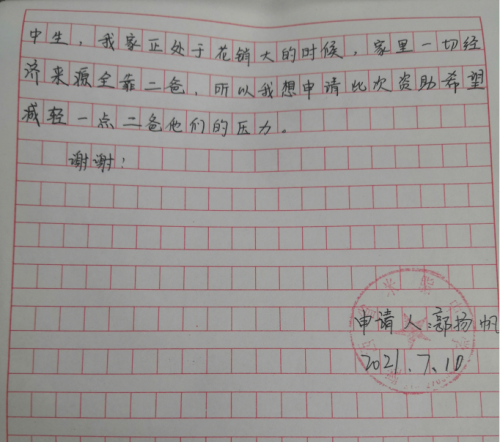 中生，我家正处于花销大的时候，家里一切经
济来源全靠二爸，所以我想申请此次资助希望
减轻一点二爸他们的压力。
谢谢！
申请人：郭扬帆
2021.7.10